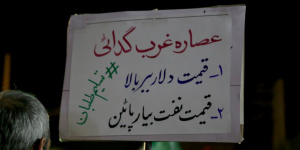 عصاره غرب گدائی
۱- قیمت دلار بیر بالا
۲- قیمت نفت بیار پائین
#تسلیم_طلبان